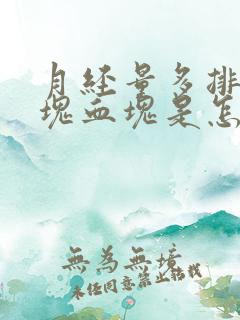 月经量多排
块血块是怎
無為無境
未经同意禁止转载